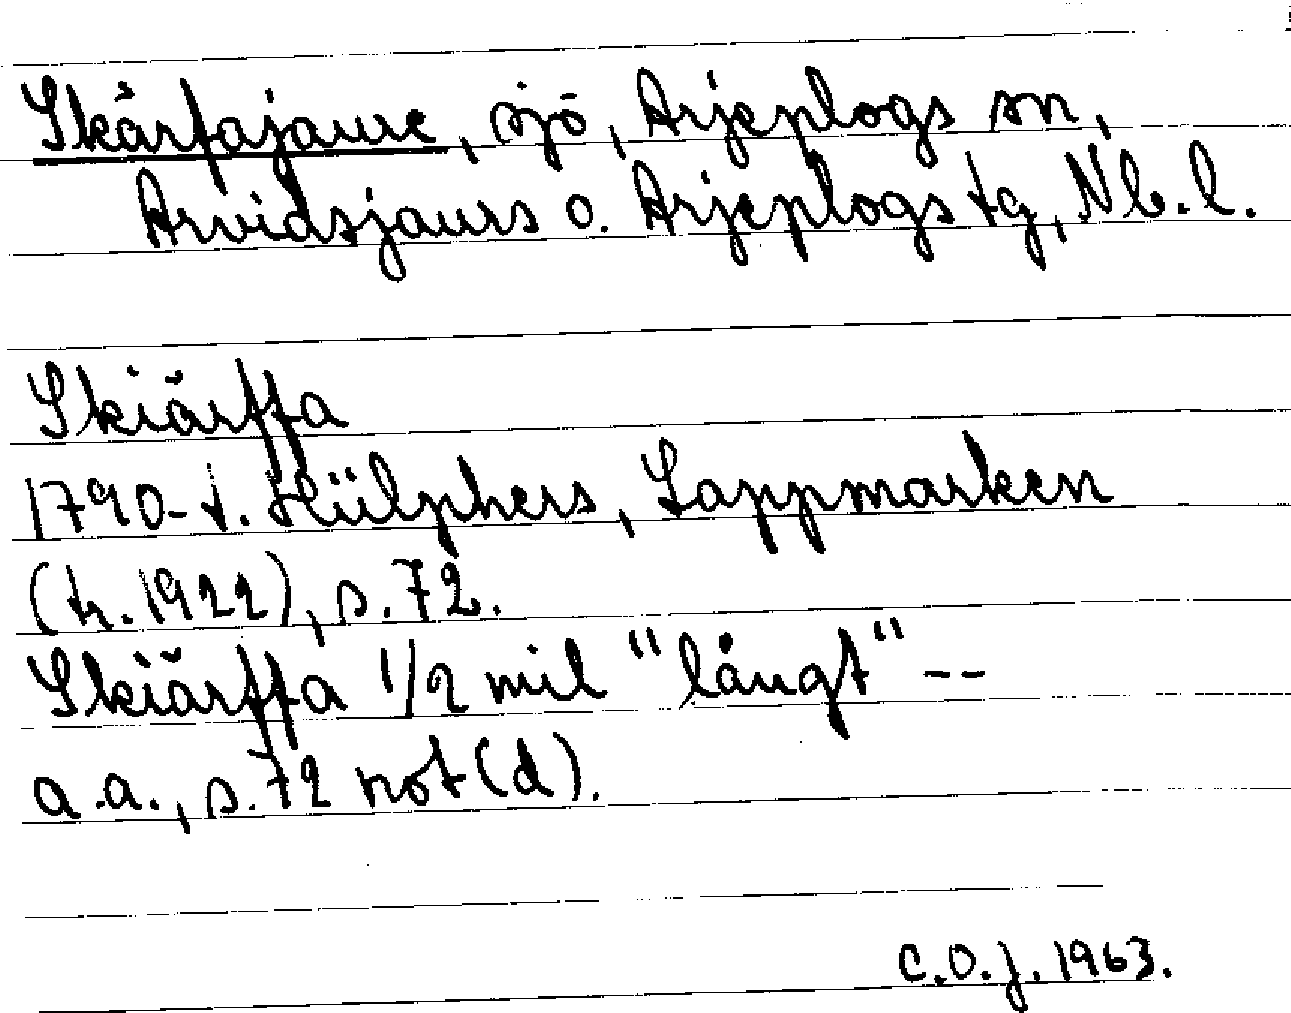 Skärfajaure, sjö, Arjeplogs sn,
Arvidsjaurs o. Arjeplogs tg, Nb. l.
Skiärffa
1790-t. Hülphers, Lappmarken
(tr. 1922), s. 72.
Skiärffa 1/2 mil "långt" --
a.a., s. 72 not (d).
C.O.J. 1963.